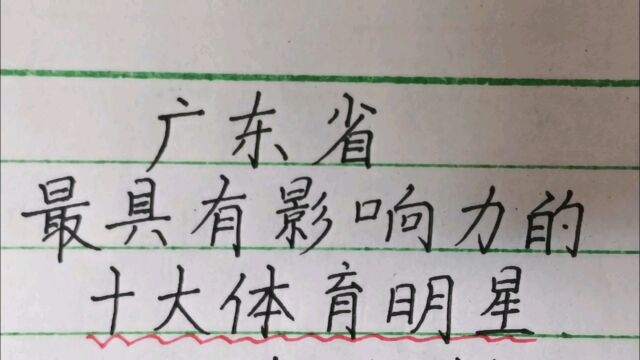 广东省
最具有影响力的
十大体育明星